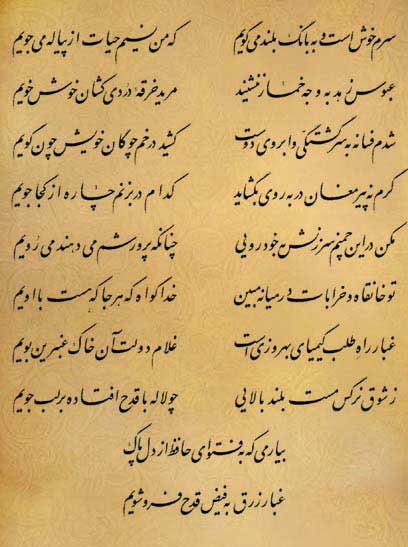 سرم خوش است و به بانگ بلند می گویم که من نسیم حیات از پیاله می جویم
عبوس زهد به وجه خمار ننشیند مرید خرقه دردی کشان خوش خویم
شدم فسانه به سرگشتگی و ابروی دوست کشید در خم چوگان خویش چون گویم
گرم نه پیر مغان در به روی بگشاید کدام در بزنم چاره از کجا جویم
مکن در این چمنم سرزنش به خودرویی چنانکه پرورشم می دهند می رویم
تو خانقاه و خرابات در میانه مبین خدا گواه که هر جا که هست با اویم
غبار راه طلب کیمیای بهروزی است غلام دولت آن خاک عنبرین بویم
ز شوق نرگس مست بلند بالایی چو لاله با قدح افتاده بر لب جویم
بیار می که به فتوای حافظ از دل پاک
غبار زرق به فیض قدح فرو شویم